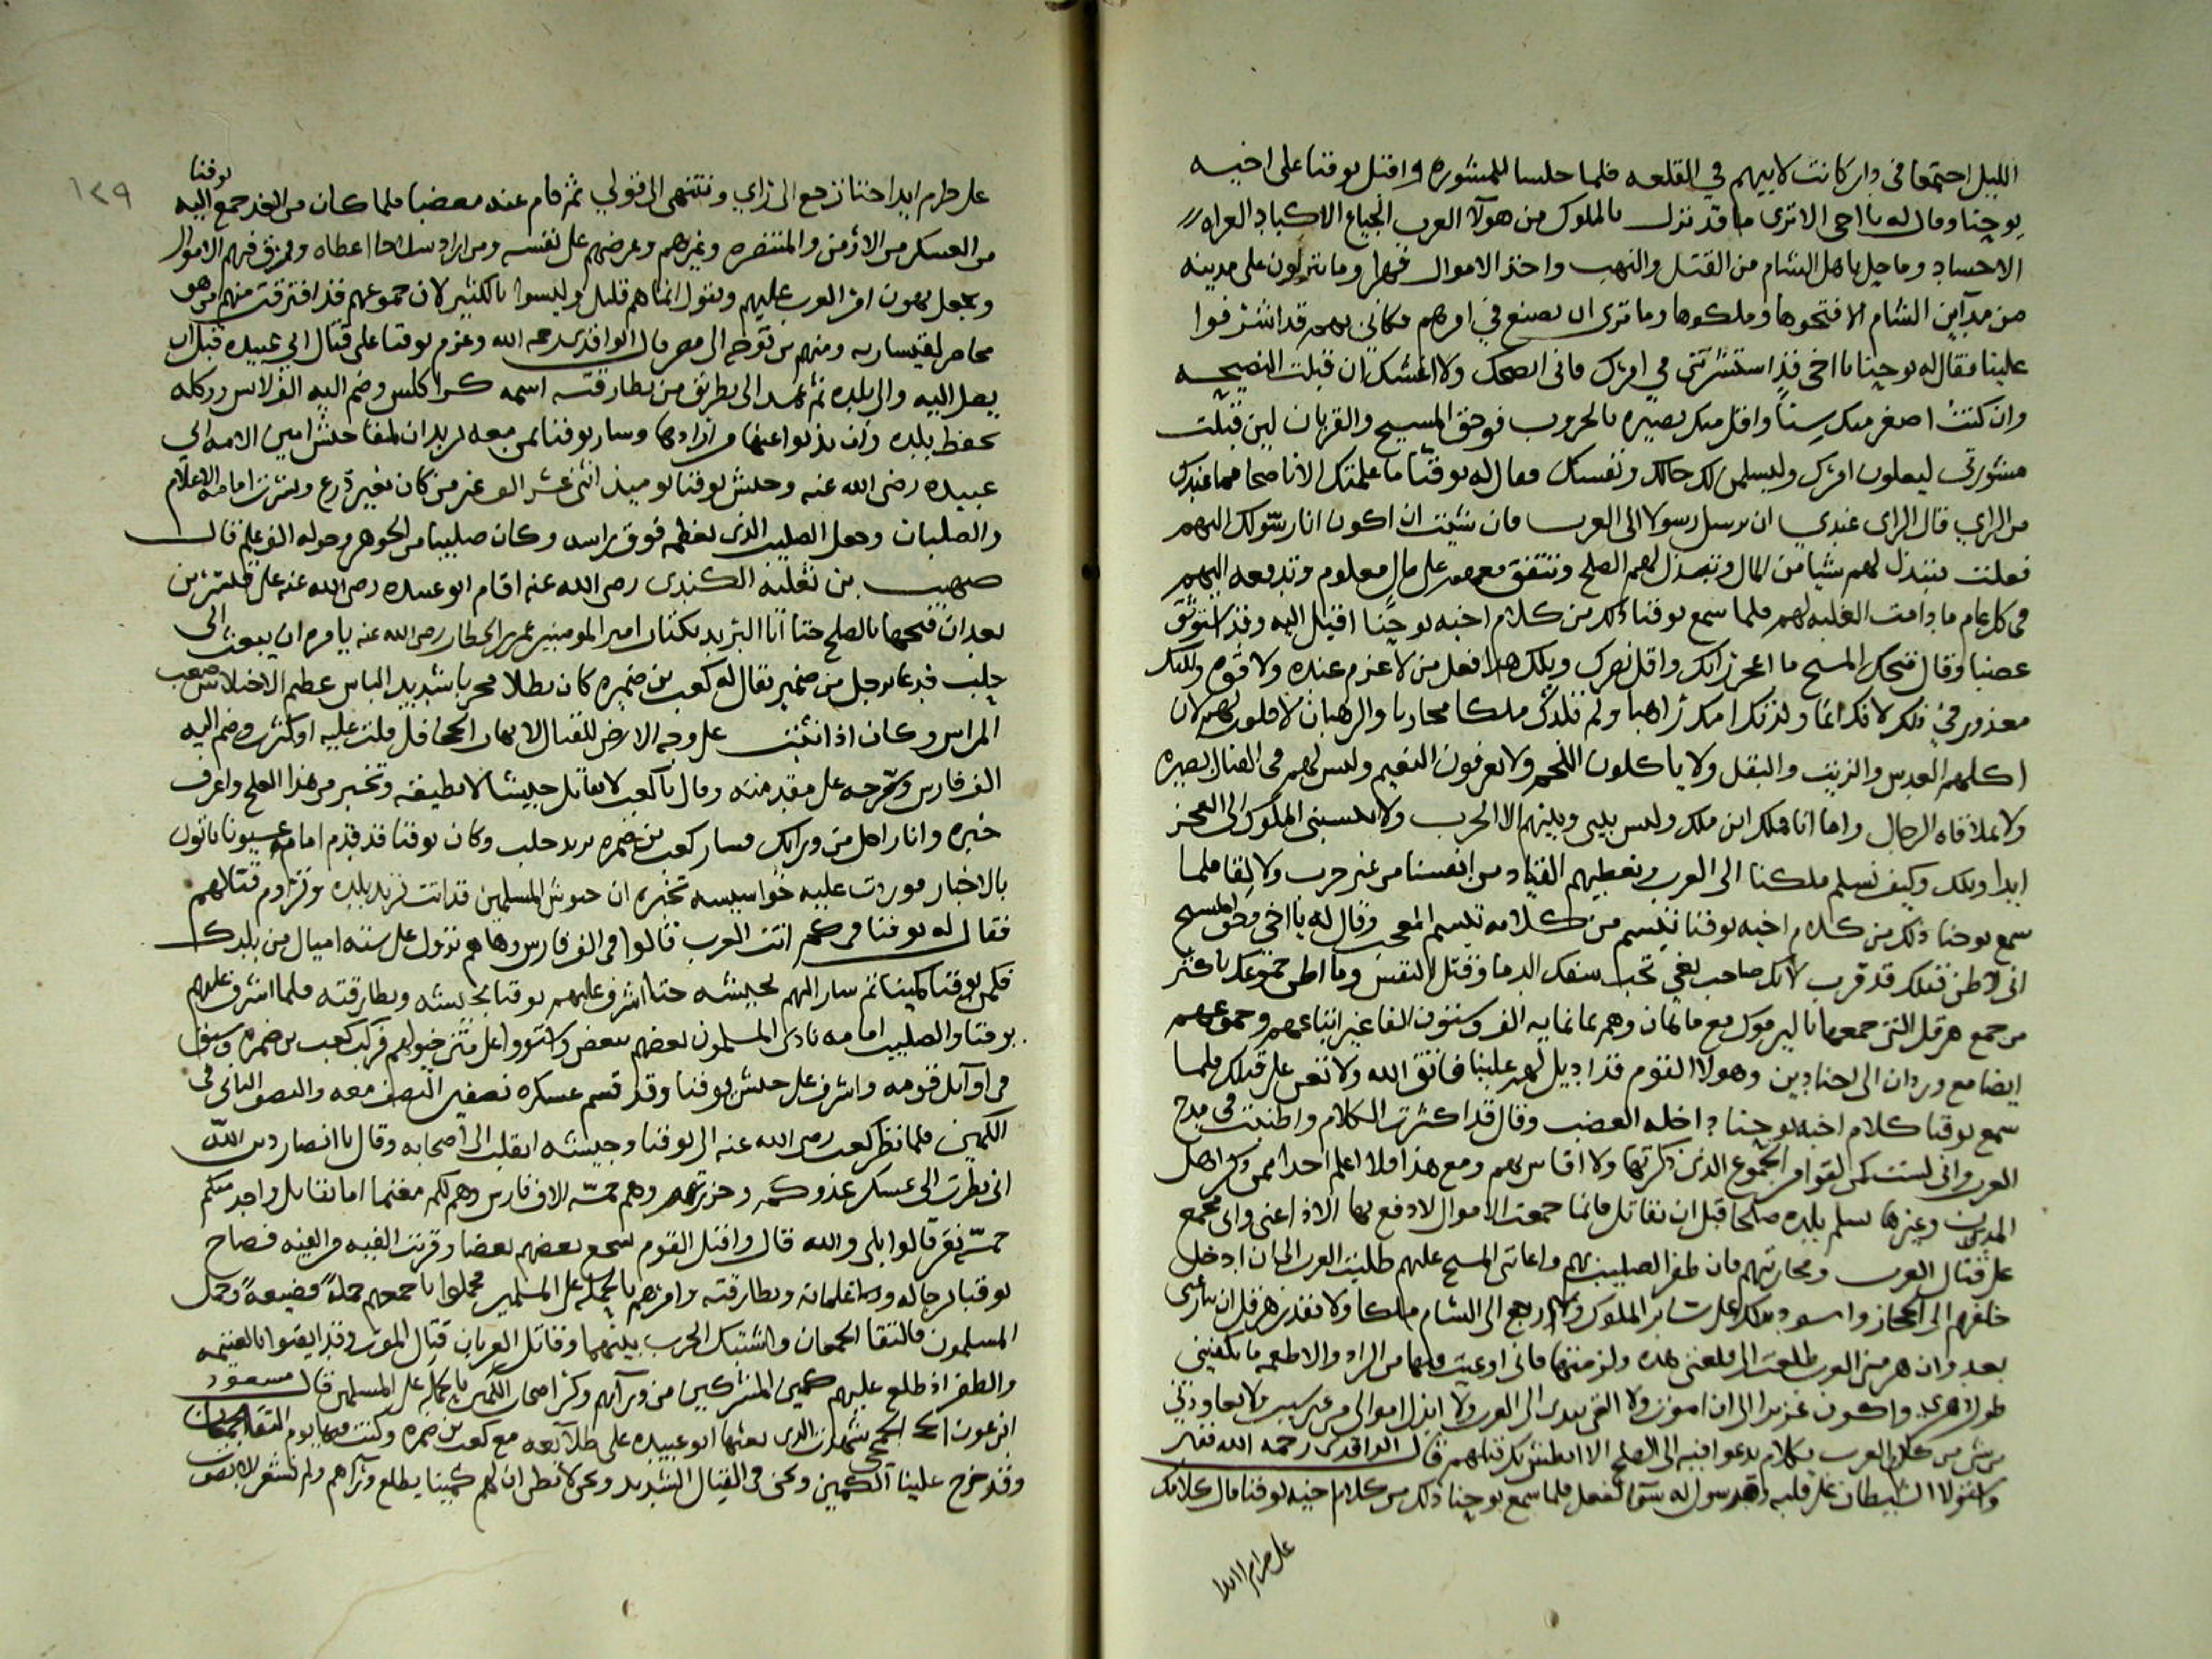 الليل اجتمعا في دار كانت لابيهم في القلعه فلما جلسا للمشوره واقبل يوقنا على اخيه
يوحنا وقال له يا اخي الا ترى ما قد نزل بالملوك من هولآ العرب الجياع الاكباد العراه
الاجساد وما حل باهل الشام من القتل والنهب واخذ الاموال قهرا وما ينزلون على مدينه
من مدآين الشام الا فتحوها وملكوها وما ترى ان نصنع في امرهم فكاني بهم قد اشرفوا
علينا فقال له يوحنا يا اخي قد استشرتني في امرك فاني انصحك ولا اغشك ان قبلت النصيحه
وان كنت اصغر منك سنا واقل منك بصيره بالحروب فوحق المسيح والقربان لين قبلت
مشورتي ليعلون امرك وليسلمن لك حالك ونفسك فقال له يوقنا ما علمتك الا ناصحا فما عندك
من الراي قال الراي عندي ان ترسل رسولا الى العرب فان شيت ان اكون انا رسولك اليهم
فعلت فتبذل لهم شيا من المال وتبذل لهم الصلح ونتفق معهم على مال معلوم وتدفعه اليهم
في كل عام ما دامت الغلبه لهم فلما سمع يوقنا ذلك من كلام اخيه يوحنا اقبل اليه وقد استوثق
غضبا وقال قبحك المسيح ما اعجز رايك واقل نصرك ويلك هذا فعل من لا عزم عنده ولا قوه ولكنك
معذور في ذلك لانك انما ولدتك امك راهبا ولم تلدك ملكا محاربا والرهبان لا قلوب لهم لان
اكلهم العدس والزيت والبقل ولا ياكلون اللحم ولا يعرفون النعيم وليس لهم في القتال بصيره
ولا بملاقاه الرجال واما انا ملك ابن ملك وليس بيني وبينهم الا الحرب ولا تنسبني الملوك الى العجز
ابدا ويلك وكيف نسلم ملكنا الى العرب ونعطيهم القياد من انفسنا من غير حرب ولا لقا فلما
سمع يوحنا ذلك من كلام اخيه يوقنا تبسم من كلامه تبسم المعجب وقال له يا اخي وحق المسيح
اني لاظن قتلك قد قرب لانك صاحب بغي تحب سفك الدما وقتل النفس وما اظن جموعك باكثر
من جمع هرقل التي جمعها باليرموك مع ماهان وهم ثمانمايه الف وستون الفا غير اتباعهم وجموعهم
ايضا مع وردان الى اجنادين وهولا القوم قد اديل لهم علينا فاتق الله ولا تعن على قتلك فلما
سمع يوقنا كلام اخيه يوحنا داخله الغضب وقال قد اكثرت الكلام واطنبت في مدح
العرب واني لست كمن لقوا من الجموع الذين ذكرتها ولا اقاس بهم ومع هذا فلا اعلم احدا ممن ذكر اهل
المدن وغيرها سلم بلده صلحا قبل ان نقاتل وانما جمعت الاموال لادفع بها الاذا عني واني مجمع
على قتال العرب ومحاربتهم فان ظفر الصليب بهم واعانني المسيح عليهم طلبت العرب الى ان ادخل
خلفهم الى الحجاز واسود بذلك على ساير الملوك وارجع الى الشام ملكا ولا يقدر هرقل ان ينازعني
بعد وان هزمني العرب طلعت الى قلعتي هذه ولزمتها فاني اوعيت فيها من الزاد والاطعمه ما يكفيني
طول دهري واكون عزيزا الى ان اموت ولا القي بيدي الى العرب ولا ابذل اموالي من غير سبب ولا تعاودني
من شي من كلام العرب بكلام تدعوا فيه الى الصلح الا ابطش بك قبلهم قال الواقدي رحمه الله
واستولا الشيطان على قلبه وقد سول له سوآ لفعل فلما سمع يوحنا ذلك من كلام اخيه يوقنا قال كلامك
على حرام ابدا
١٣٩
يوقنا
على حرام ابدا حتا ترجع الى راي وتنتهي الى قولي ثم قام عنه مغضبا فلما كان من الغد جمع اليه
من العسكر من الارمن والمتنصره وغيرهم وعرضهم على نفسه ومن اراد سلاحا اعطاه وفرق فيهم الاموال
وجعل يهون امر العرب عليهم ويقول انما هم قليل وليسوا بالكثير لان جموعهم قد افترقت منهم من هو
محاصر لقيساريه ومنهم من توجه الى مصر قال الواقدي رحمه الله وعزم يوقنا على قتال ابي عبيده قبل ان
يصل اليه والى بلده ثم عمد الى بطريق من بطارقته اسمه كراكلس وضم اليه الف لابس ووكله
بحفظ بلده وسار يوقنا بمن معه يريد ان يلقا جيش امين الامه ابي
عبيده رضى الله عنه وجيش يوقنا يوميذ اثني عشر الف غير من كان بغير درع ونشرت امامه الاعلام
والصلبان وجعل الصليب الذي يعظمه فوق راسه وكان صليبا من الجوهر وحوله الف علج قال
صهيب بن ثعلبه الكندى رضى الله عنه اقام ابو عبيده رضى الله عنه على قنسرين
بعد ان فتحها بالصلح حتا اتا البريد بكتاب امير المومنين عمر بن الخطاب رضى الله عنه يامره ان يبعث الى
حلب فدعا برجل من ضمير يقال له كعب بن ضمره كان بطلا محربا شديد الباس عظيم الاختلاس صعب
المراس وكان اذا على وجه الارض للقتال لا يهاب الجحافل قلت عليه او كثرت وضم اليه
الف فارس وسرحه على مقدمته وقال يا كعب لا تقاتل جيشا لا تطيقه وتخبر من هذا العلج واعرف
خبره وانا راحل من ورايك فسار كعب بن ضمره يريد حلب وكان يوقنا قد قدم امامه عيونا ياتون
بالاخبار فوردت عليه جواسيسه تخبره ان جيوش المسلمين قد اتت تريد بلده وتروم قتالهم
فقال له يوقنا في كم اتت العرب قالوا في الف فارس وها هم نزول على سته اميال من بلدك
فكمن يوقنا كمينا ثم سار اليهم بجيشه حتا اشرف عليهم يوقنا بجيشه وبطارقته فلما اشرف عليهم
يوقنا والصليب امامه نادى المسلمون بعضهم ببعض واستووا على متن خيولهم فركب كعب بن ضمره وسبق
في اوآيل قومه واشرف على جيش يوقنا وقد قسم عسكره نصفين النصف معه والنصف الثاني في
الكمين فلما نظر كعب رضى الله عنه الى يوقنا وجيشه انقلب الى اصحابه وقال يا انصار دين الله
اني نظرت الى عسكر عدوكم وحزرتهم وهم خمسه الاف فارس وهم لكم مغنما اما يقاتل واحد منكم
خمسه نفر قالوا بلى والله قال واقبل القوم يشجع بعضهم بعضا وقربت الفيه من الفيه فصاح
يوقنا برجاله وغلمانه وبطارقته وامرهم بالحمله على المسلمين فحملوا باجمعهم حمله فضيعه وحمل
المسلمون فالتقا الجمعان واشتبك الحرب بينهما وقاتل العربان قتال الموت وقد ايقنوا بالغنيمه
والظفر اذ طلع عليهم كمين المشركين من ورآيهم وكثر اصحاب الكمين بالحمله على المسلمين قال مسعود
ابن عون شهدت الذي بعثها ابو عبيده على طلآيعه مع كعب بن ضمره وكنت فيها يوم التقا الجمعان
وقد خرج علينا الكمين ونحن في القتال الشديد ونحن لا نظن ان لهم كمينا يطلع من ورآهم ولم نشعر الا بصوت